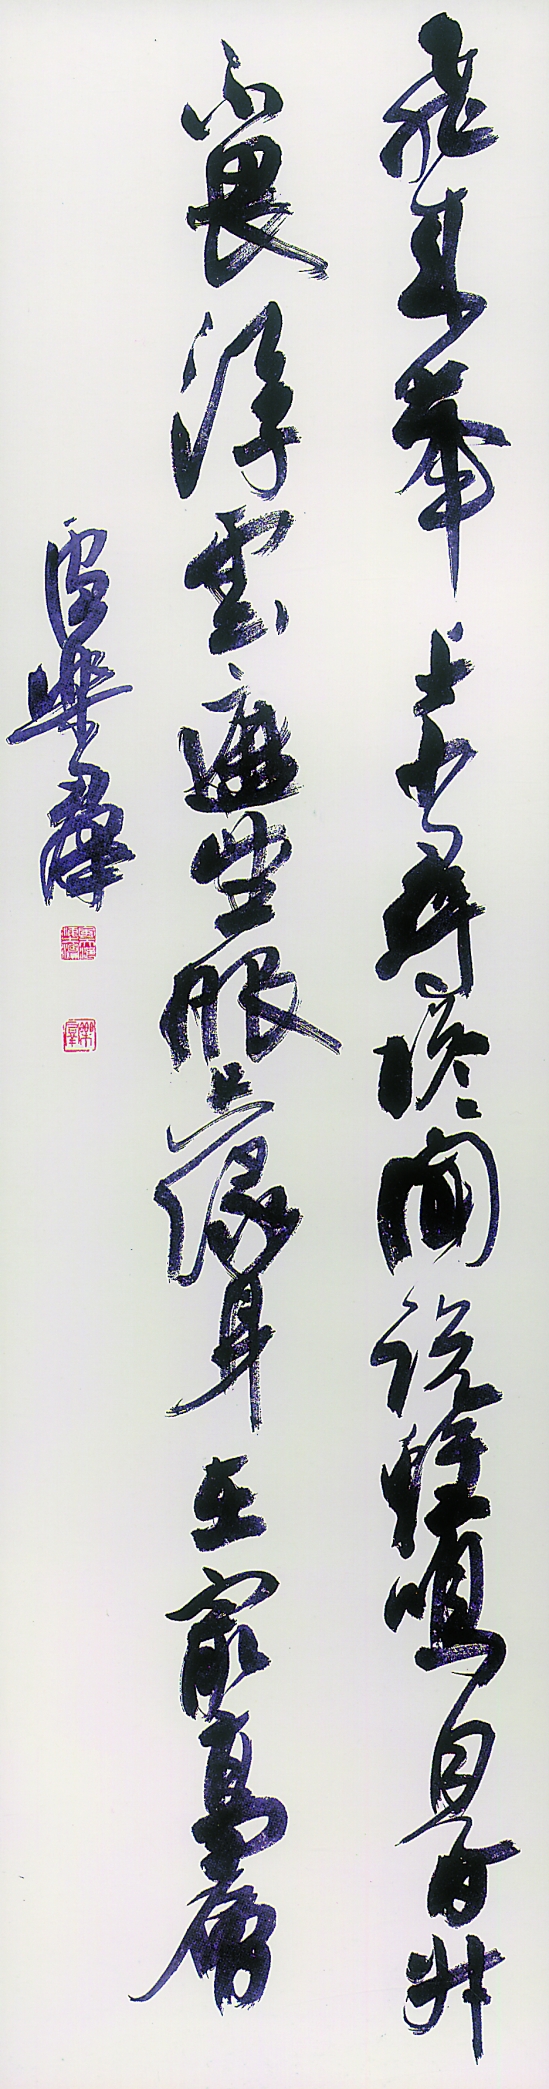 飛來峯上千尋塔聞說雞鳴見日升
不畏浮雲遮望眼只緣身在最高層